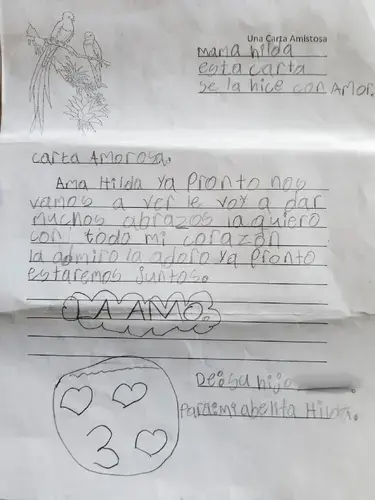 Una Carta Amistosa
Mama hilda
esta carta
se la hice con AMOR.
carta AMorosa.
Ama Hilda ya pronto nos
vamos a ver le voy a dar
muchos abrazos la quiero
con todo mi corazón
la admiro la adoro ya pronto
estaremos juntos.
LA AMO.
De: su hijo
Para: mi abelita Hilda.